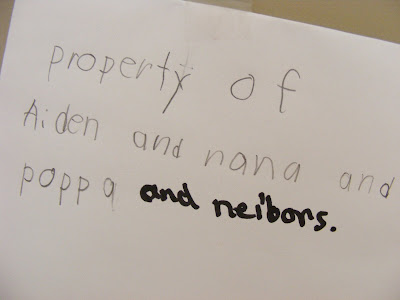 property of
Aiden and nana and
poppa and neibors.